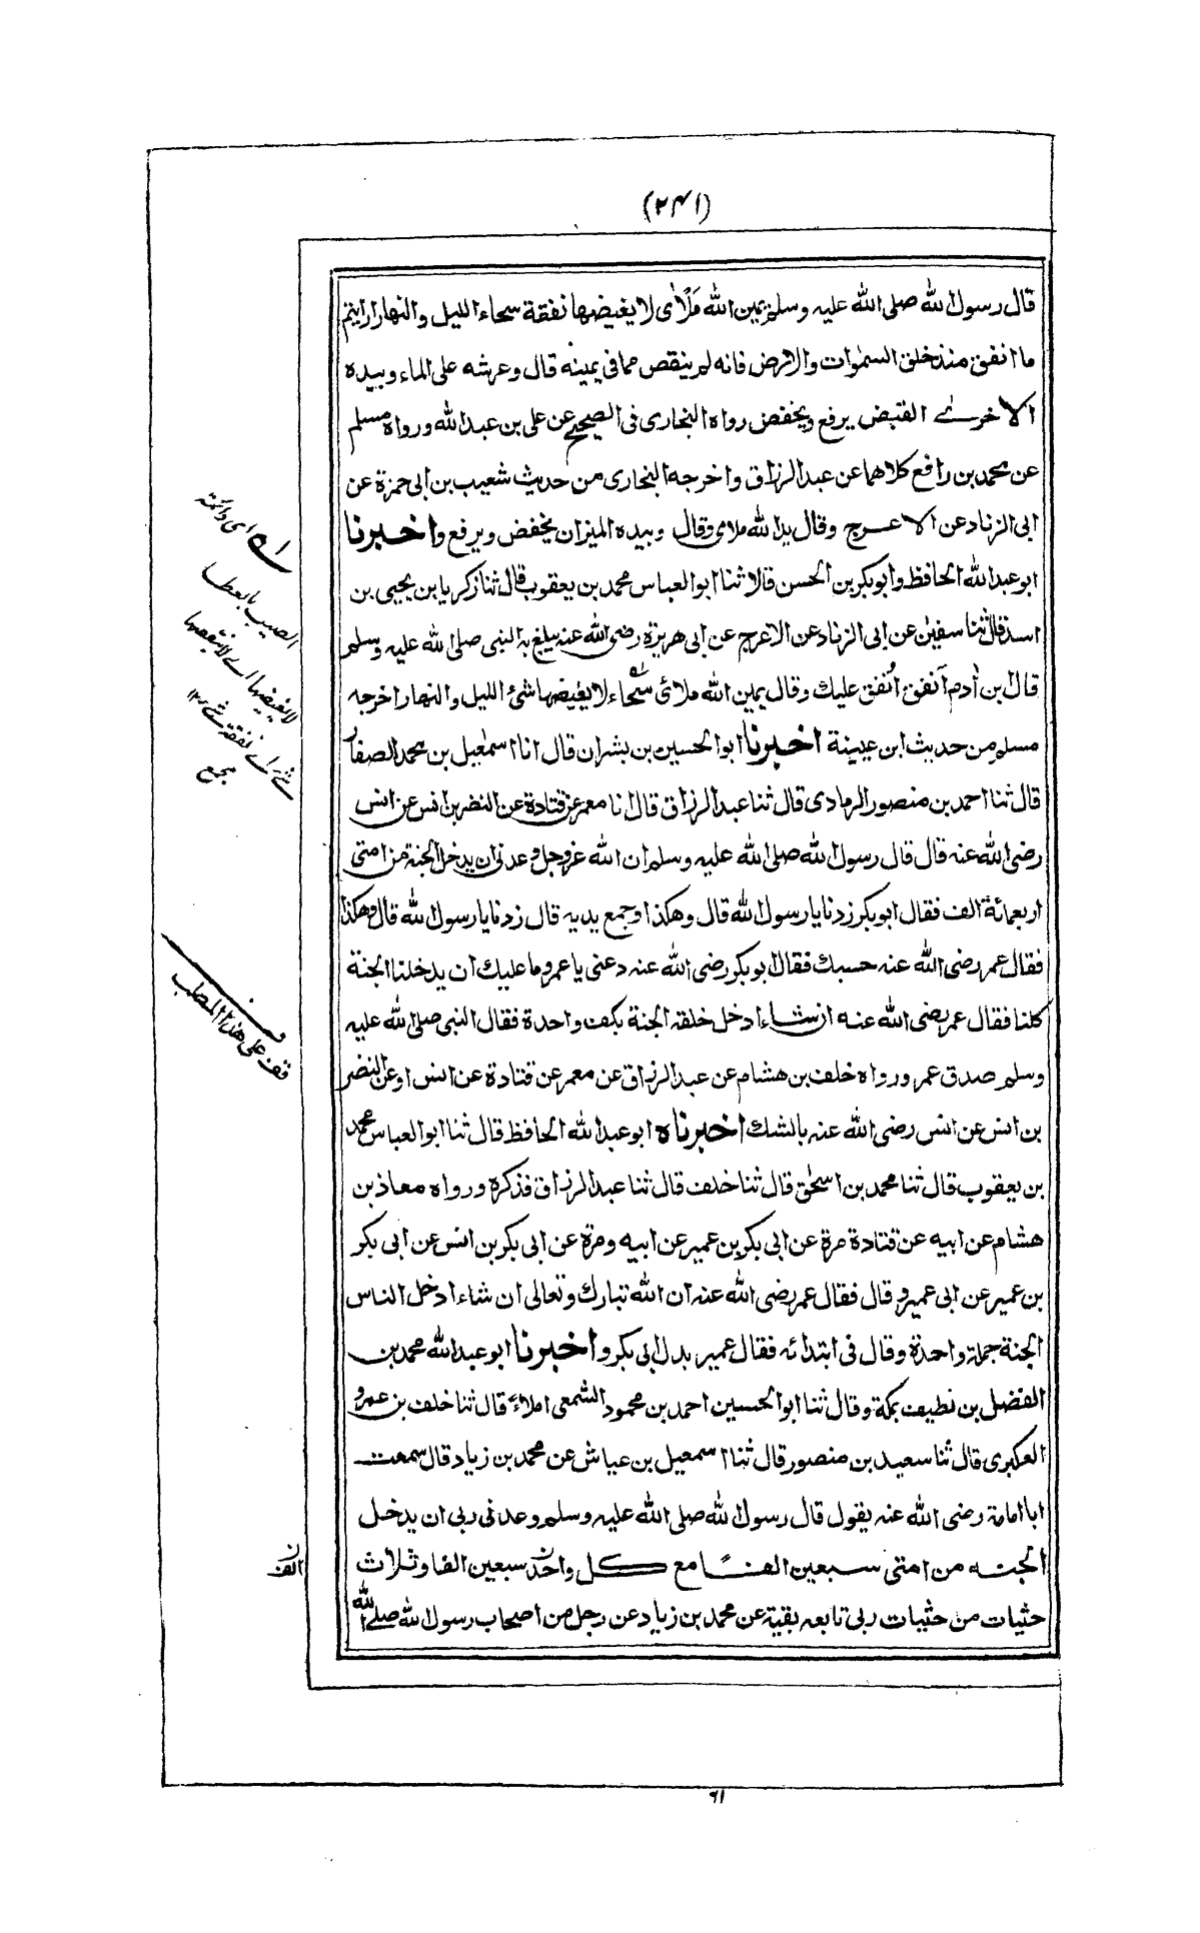 (٢٤١)
قال رسول الله صلى الله عليه وسلم يمين الله مَلْأى لا يغيضها نفقة سحاء الليل والنهار ارايتم
ما انفق منذ خلق السموات والارض فانه لم ينقص مما فى يمينه قال وعرشه على الماء وبيده
الاخرى القبض يرفع ويخفض رواه البخارى فى الصحيح عن على بن عبد الله ورواه مسلم
عن محمد بن رافع كلاهما عن عبد الرزاق واخرجه البخارى من حديث شعيب بن ابى حمزة عن
ابى الزناد عن الاعرج وقال يد الله ملاى وقال وبيده الميزان يخفض ويرفع واخبرنا
ابو عبد الله الحافظ وابو بكر بن الحسن قالا ثنا ابو العباس محمد بن يعقوب قال ثنا زكريا بن يحيى بن
اسد قال ثنا سفين عن ابى الزناد عن الاعرج عن ابى هريرة رضى الله عنه يبلغ به النبى صلى الله عليه وسلم
قال ابن أدم أنفق اُنفق عليك وقال يمين الله ملائ سحاء لا يغيضها شئ الليل والنهار اخرجه
مسلم من حديث ابن عيينة اخبرنا ابو الحسين بن بشران قال انا اسمعيل بن محمد الصفار
قال ثنا احمد بن منصور الرمادى قال ثنا عبد الرزاق قال انا معمر عن قتادة عن النضر بن انس عن انس
رضى الله عنه قال قال رسول الله صلى الله عليه وسلم ان الله عز وجل وعدنى ان يدخل الجنة من امتى
اربعمائة الف فقال ابو بكر زدنا يا رسول الله قال وهكذا وجمع يديه قال زدنا يا رسول الله قال وهكذا
فقال عمر رضى الله عنه حسبك فقال ابو بكر رضى الله عنه دعنى يا عمر وما عليك ان يدخلنا الجنة
كلنا فقال عمر رضى الله عنه ان شاء ادخل خلقه الجنة بكف واحدة فقال النبى صلى الله عليه
وسلم صدق عمر ورواه خلف بن هشام عن عبد الرزاق عن معمر عن قتادة عن انس او عن النضر
بن انس عن انس رضى الله عنه بالشك اخبرناه ابو عبد الله الحافظ قال ثنا ابو العباس محمد
بن يعقوب قال ثنا محمد بن اسحق قال ثنا خلف قال ثنا عبد الرزاق فذكره ورواه معاذ بن
هشام عن ابيه عن قتادة مرة عن ابى بكر بن عمير عن ابيه ومرة عن ابى بكر بن انس عن ابى بكر
بن عمير عن ابى عمير و قال فقال عمر رضى الله عنه ان الله تبارك وتعالى ان شاء ادخل الناس
الجنة جملة واحدة وقال فى ابتدائه فقال عمير بدل ابى بكر واخبرنا ابو عبد الله محمد بن
الفضل بن نطيف بمكة وقال ثنا ابو الحسين احمد بن محمود الشمعى املاءً قال ثنا خلف بن عمرو
العكبرى قال ثنا سعيد بن منصور قال ثنا اسمعيل بن عياش عن محمد بن زياد قال سمعت
ابا امامة رضى الله عنه يقول قال رسول الله صلى الله عليه وسلم وعدنى ربى ان يدخل
الجنه من امتى سبعين الفًا مع كل واحد سبعين الفا وثلاث
حثيات من حثيات ربى تابعه بقية عن محمد بن زياد عن رجل من اصحاب رسول الله صلى الله
اى دائمة
الصب بالعطا
لا يغيضها اى لا ينقصها
نفقة ١٢
مجمع
قف على هذا المطلب
الف
٦١